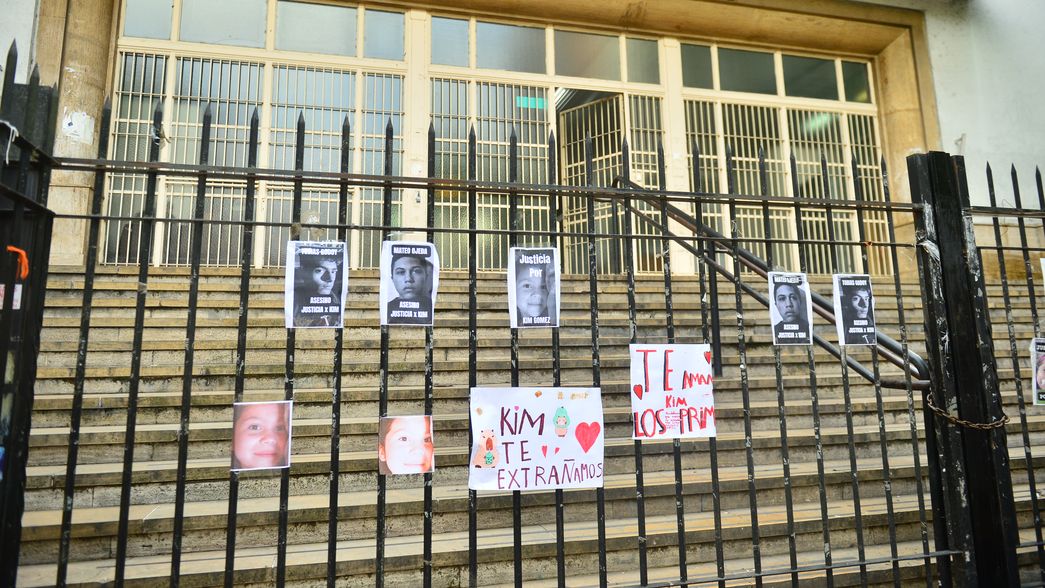 TOBIAS GODOY
ASESINO
JUSTICIA x KIM
MATEO OJEDA
ASESINO
JUSTICIA x KIM
Justicia
Por
KIM GOMEZ
MATEO OJEDA
ASESINO
JUSTICIA x KIM
TOBIAS GODOY
ASESINO
JUSTICIA x KIM
KIM
TE
EXTRAÑAMOS
TE AMAN
KIM
LOS PRIM